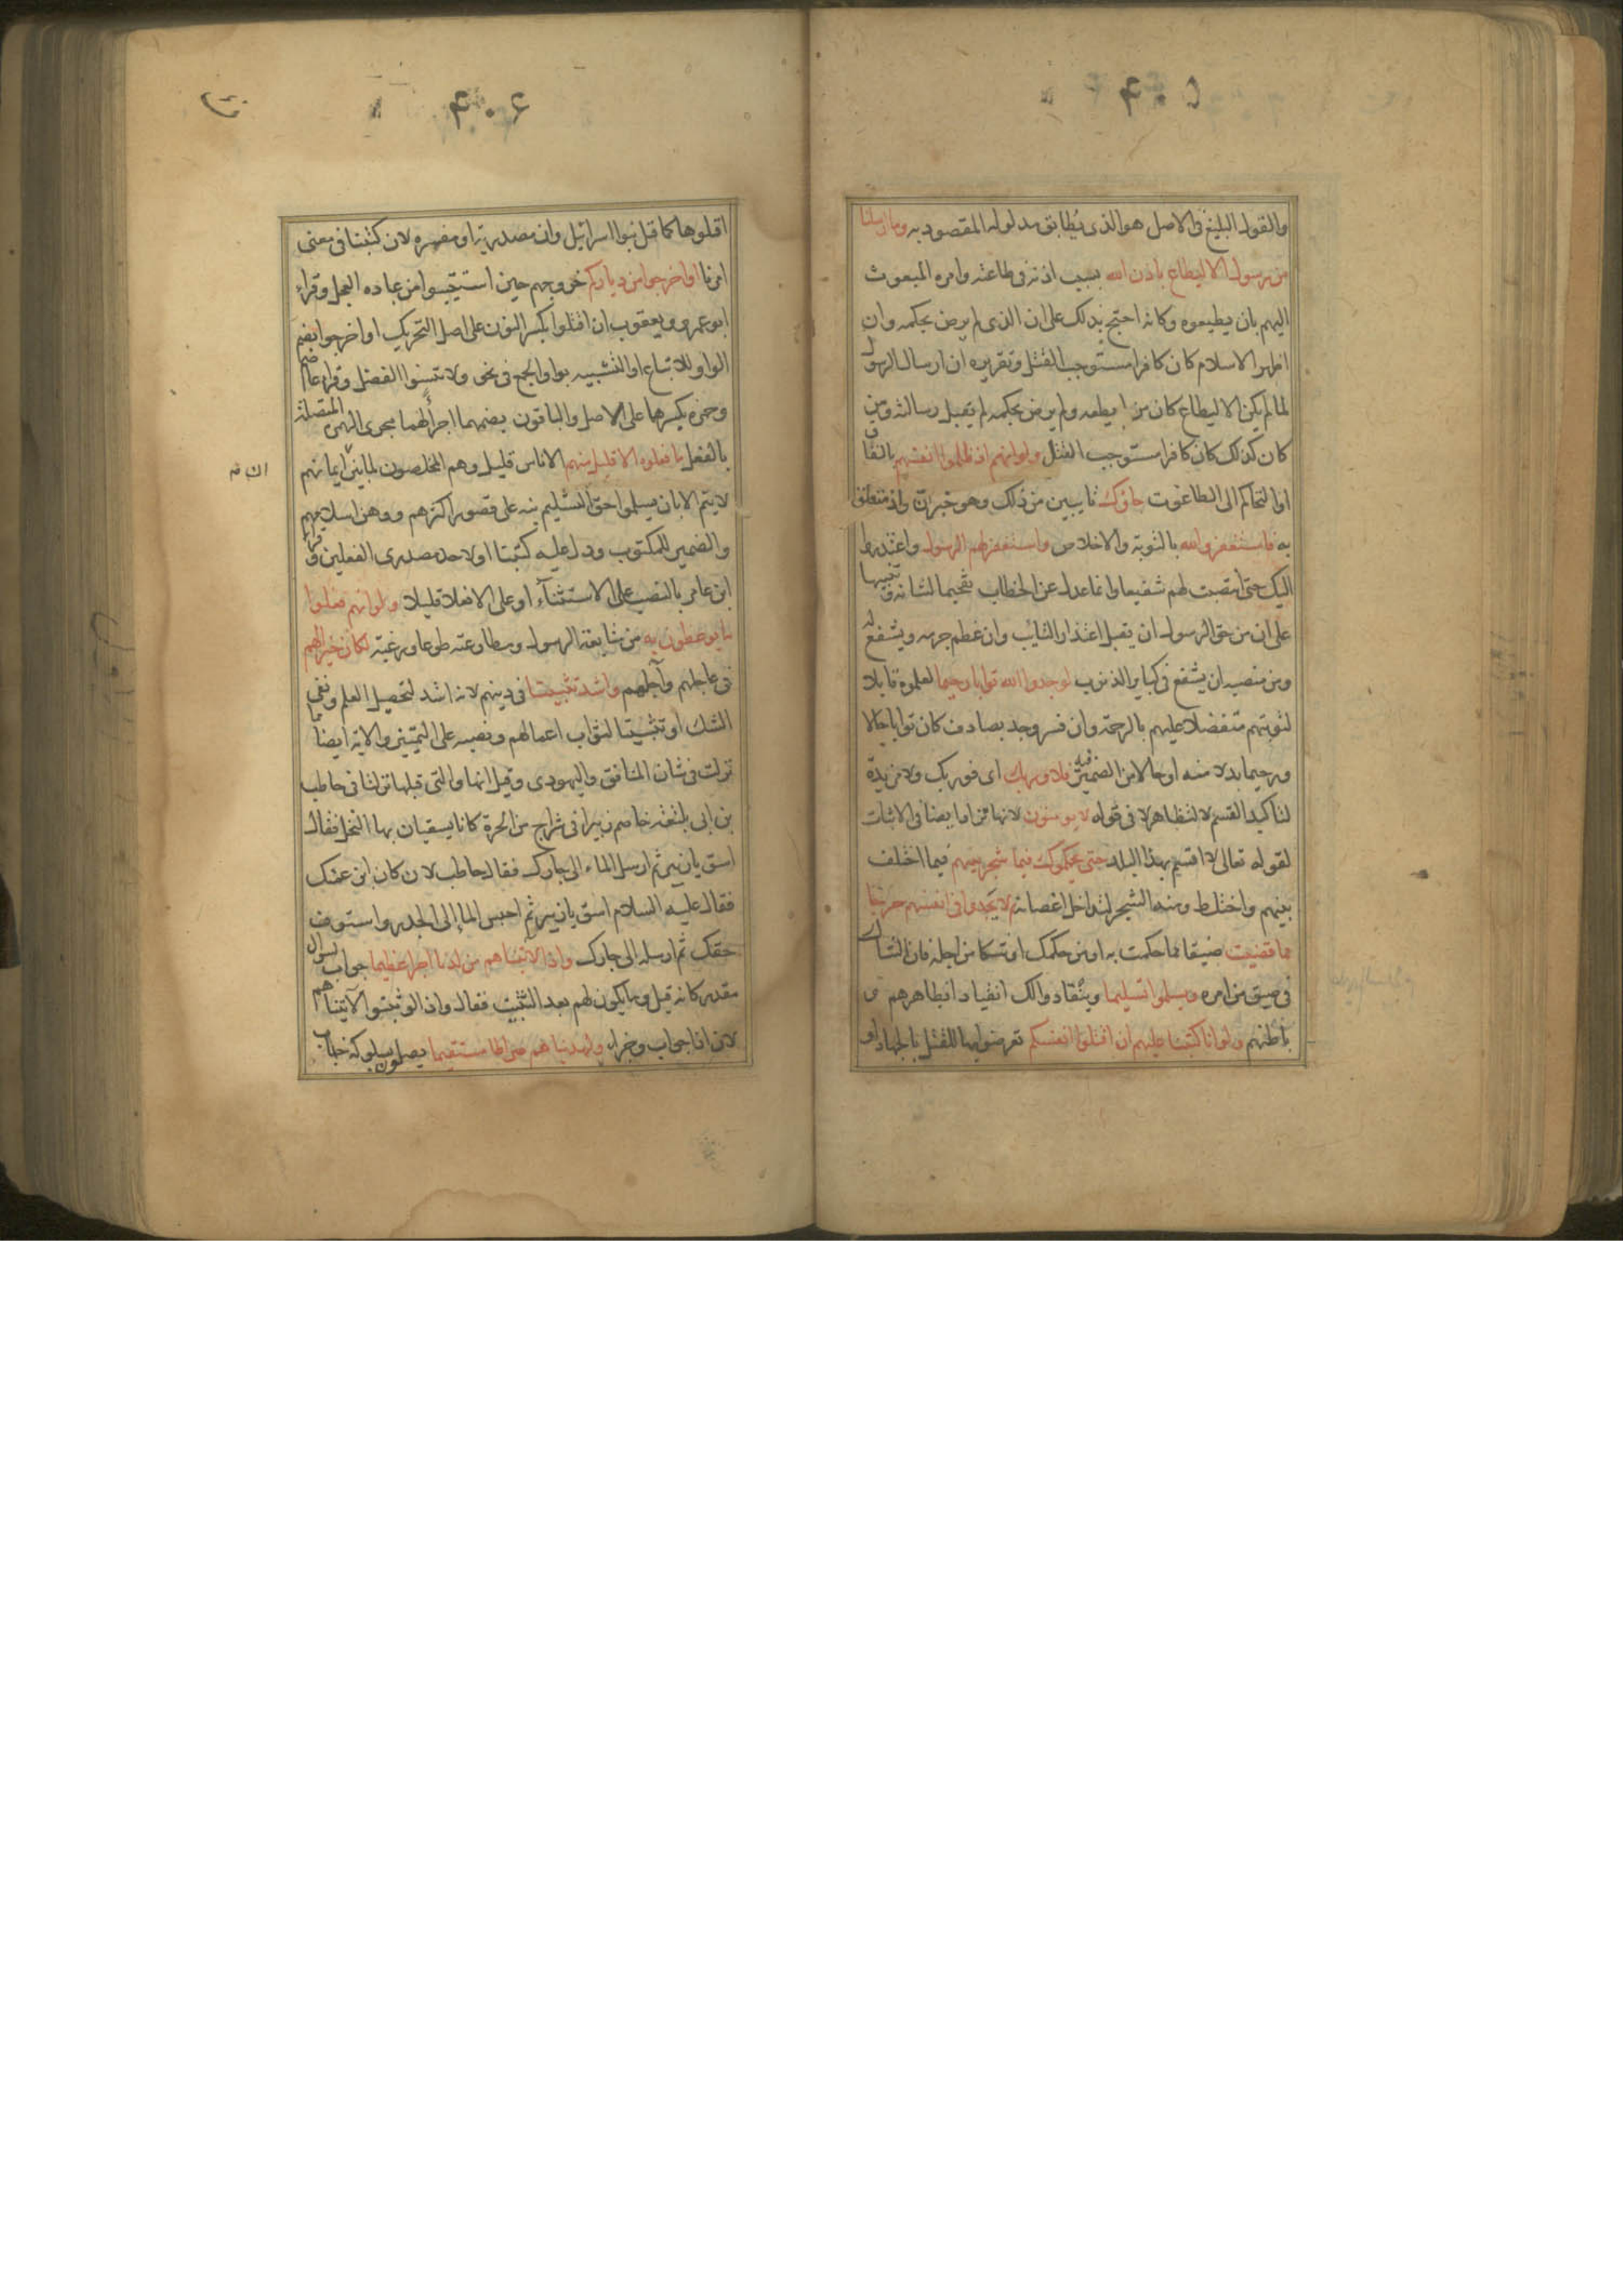 ۴۰۵
والقول البليغ فى الاصل هو الذى يطابق مدلوله المقصود به وما ارسلنا
من رسول الا ليطاع باذن الله بسبب اذنه فى طاعته وامره المبعوث
اليهم بان يطيعوه وكانه احتج بذلك على ان الذى لم يرض بحكمه وان
اظهر الاسلام كان كافرا مستوجب القتل وتقريره ان ارسال الرسول
لما لم يكن الا ليطاع كان من لم يطعه ولم يرض بحكمه لم يقبل رسالته ومن
كان كذلك كان كافرا مستوجب القتل ولو انهم اذ ظلموا انفسهم بالنفاق
او التحاكم الى الطاغوت جاؤك تايبين من ذلك وهو خبر ان واذ متعلق
به فاستغفروا الله بالتوبة والاخلاص واستغفر لهم الرسول واعتذروا
اليك حتى انتصبت لهم شفيعا وانما عدل عن الخطاب تفخيما لشانه وتنبيها
على ان من حق الرسول ان يقبل اعتذار التائب وان عظم جرمه ويشفع له
ومن منصبه ان يشفع فى كباير الذنوب لوجدوا الله توابا رحيما لعلموه قابلا
لتوبتهم متفضلا عليهم بالرحمة وان فسر وجد بصادف كان توابا حالا
ورحيما بدلا منه او حالا من الضمير فيه فلا وربك اى فوربك ولا مزيدة
لتاكيد القسم لا لتظاهر لا فى قوله لا يومنون لانها تزاد ايضا فى الاثبات
لقوله تعالى لا اقسم بهذا البلد حتى يحكموك فيما شجر بينهم فيما اختلف
بينهم واختلط ومنه الشجر لتداخل اغصانه ثم لا يجدوا فى انفسهم حرجا
مما قضيت ضيقا مما حكمت به او من حكمك او شكا من اجله فان الشاك
فى ضيق من امره ويسلموا تسليما وينقادوا لك انقيادا بظاهرهم و
باطنهم ولو انا كتبنا عليهم ان اقتلوا انفسكم تعرضوا بها للقتل بالجهاد او
۴۰۶
اقتلوها كما قتل بنوا اسرائيل وان مصدرية او مفسره لان كتبنا فى معنى
امرنا او اخرجوا من دياركم خروجهم حين استتيبوا من عباده العجل وقراء
ابو عمرو ويعقوب ان اقتلوا بكسر النون على اصل التحريك او اخرجوا بضم
الواو للاتباع او التشبيه بواو الجمع فى نحو ولا تنسوا الفضل وقراء عاصم
وحمزه بكسرهما على الاصل والباقون بضمهما اجراء لهما مجرى الهمزه المتصلة
بالفعل ما فعلوه الا قليل منهم الا ناس قليل وهم المخلصون لما بين ايمانهم
لا يتم الا بان يسلموا حق التسليم نبه على قصور اكثرهم ووهن اسلامهم
والضمير للمكتوب ودل عليه كتبنا او لاحد مصدرى الفعلين وقراء
ابن عامر بالنصب على الاستثناء او على الا فعلا قليلا ولو انهم فعلوا
ما يوعظون به من متابعة الرسول ومطاوعته طوعا ورغبة لكان خيرا لهم
فى عاجلهم وآجلهم واشد تثبيتا فى دينهم لانه اشد لتحصيل العلم ونفى
الشك او تثبيتا لثواب اعمالهم ونصبه على التمييز والاية ايضا مما
نزلت فى شان المنافق واليهودى وقيل انها والتى قبلها نزلتا فى حاطب
بن ابى بلتعة خاصم زبيرا فى شراج من الحرة كانا يسقيان بها النخل فقال
اسق يا زبير ثم ارسل الماء الى جارك فقال حاطب لان كان ابن عمتك
فقال عليه السلام اسق يا زبير ثم احبس الماء الى الجدر واستوف
حقك ثم ارسله الى جارك واذا لآتيناهم من لدنا اجرا عظيما جواب لسوال
مقدر كانه قيل وما يكون لهم بعد التثبيت فقال واذا لو ثبتوا لآتيناهم
لان اذا جواب وجزاء ولهديناهم صراطا مستقيما يصلون بسلوكه جناب